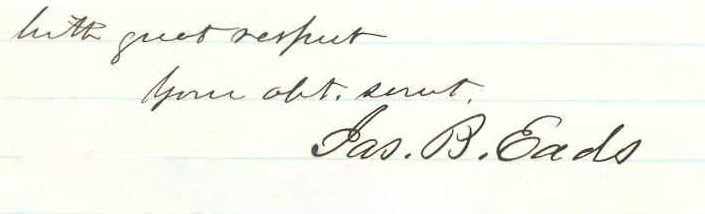 With great respect
Your obt. servt.
Jas. B. Eads